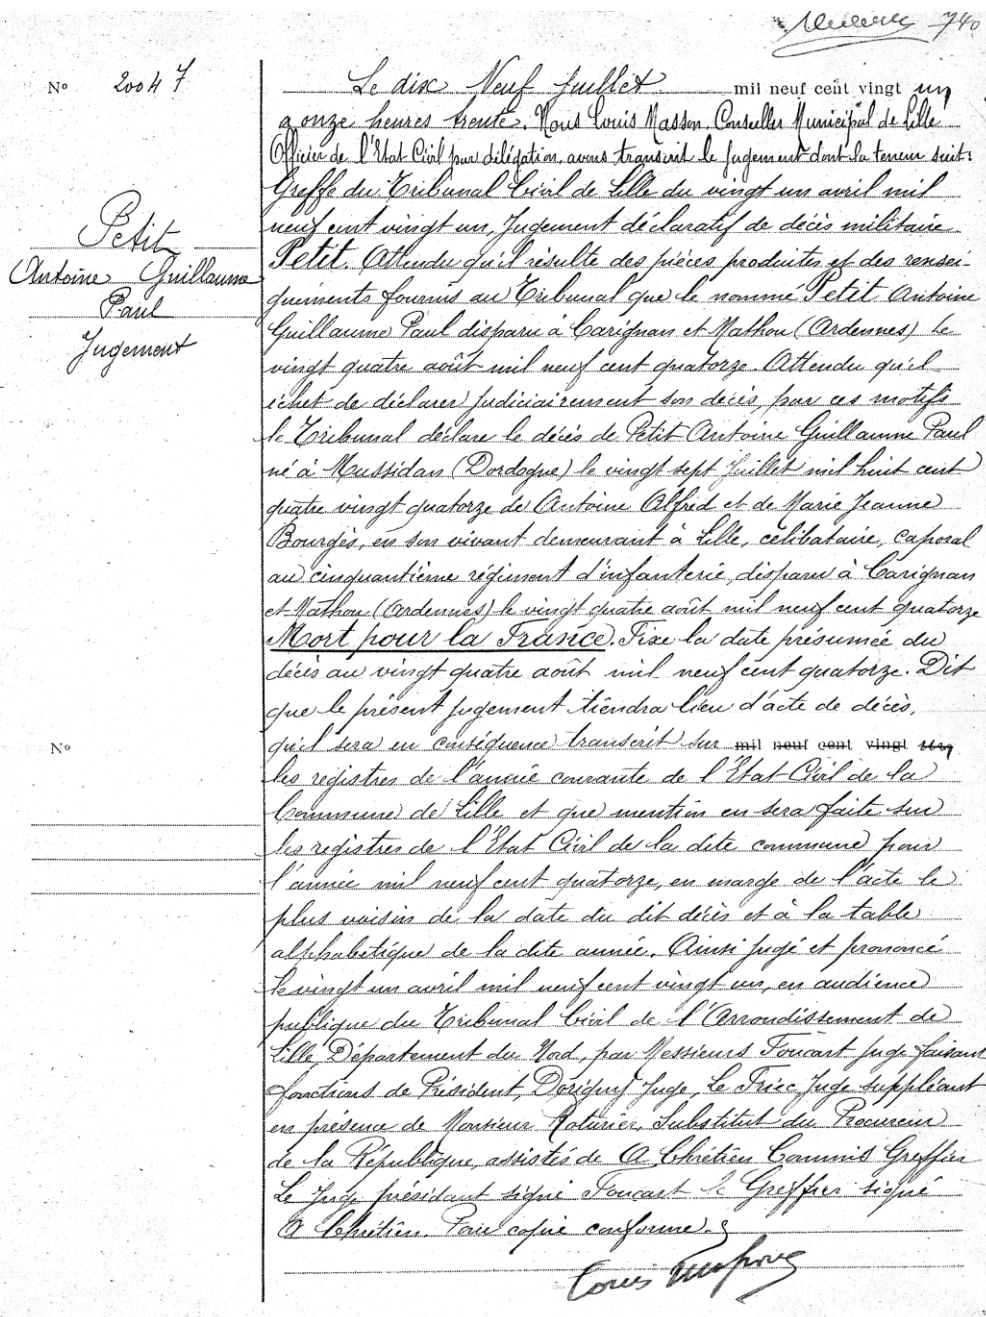 740
N° 20047
Petit
Antoine Guillaume
Paul
Jugement
Le dix Neuf Juillet mil neuf cent vingt un
a onze heures trente. Nous Louis Masson, Conseiller Municipal de Lille
Officier de l'Etat Civil par délégation, avons transcrit le jugement dont la teneur suit:
Greffe du Tribunal Civil de Lille du vingt un avril mil
neuf cent vingt un, Jugement déclaratif de décès militaire
Petit. Attendu qu'il résulte des pièces produites et des rensei-
gnements fournis au Tribunal que le nommé Petit Antoine
Guillaume Paul disparu à Carignan et Mathou (Ardennes) le
vingt quatre août mil neuf cent quatorze. Attendu qu'il
échet de déclarer judiciairement son décès, par ces motifs
le Tribunal déclare le décès de Petit Antoine Guillaume Paul
né à Mussidan (Dordogne) le vingt sept Juillet mil huit cent
quatre vingt quatorze de Antoine Alfred et de Marie Jeanne
Bourgès, en son vivant demeurant à Lille, célibataire, caporal
au cinquantième régiment d'infanterie, disparu à Carignan
et Mathou (Ardennes) le vingt quatre août mil neuf cent quatorze
Mort pour la France. Fixe la date présumée du
décès au vingt quatre août mil neuf cent quatorze. Dit
que le présent jugement tiendra lieu d'acte de décès,
qu'il sera en conséquence transcrit sur mil neuf cent vingt un
N°
les registres de l'année courante de l'Etat Civil de la
Commune de Lille et que mention en sera faite sur
les registres de l'Etat Civil de la dite commune pour
l'année mil neuf cent quatorze, en marge de l'acte le
plus voisin de la date du dit décès et à la table
alphabétique de la dite année. Ainsi jugé et prononcé
le vingt un avril mil neuf cent vingt un, en audience
publique du Tribunal Civil de l'Arrondissement de
Lille, Département du Nord, par Messieurs Foucart Juge faisant
fonctions de Président, Dorigny Juge, Le Friec Juge suppléant
en présence de Monsieur Roturier, Substitut du Procureur
de la République, assistés de A. Chrétien Commis Greffier
Le Juge présidant signé Foucart le Greffier signé
A Chrétien. Pour copie conforme.
Louis Masson